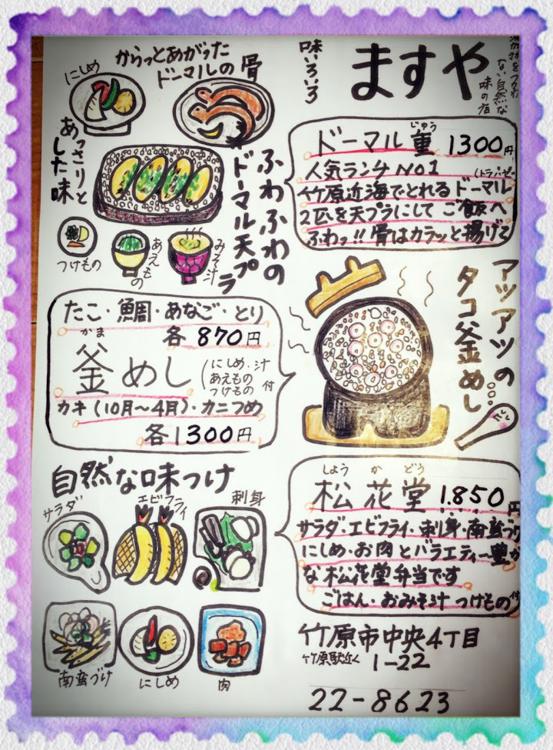 味いろいろ
ますや
ない自然な
味の店
からっとあがった
ドーマルの骨
にしめ
あっさりと
した味
ふわふわの
ドーマル天プラ
つけもの
あえもの
みそ汁
じゅう
ドーマル重 1300円
人気ランチNO1
竹原近海でとれるドーマル
2匹を天プラにして ご飯へ
ふわっ!!骨はカラッと揚げて
たこ・鯛・あなご・とり
各 870円
かま
釜めし
(にしめ・汁
あえもの
つけもの付
カキ(10月〜4月)・カニつめ
各1300円
アツアツの
タコ釜めし
自然な味つけ
サラダ
エビフライ
刺身
南蛮づけ
にしめ
肉
しょう か どう
松花堂 1,850円
サラダ・エビフライ・刺身・南蛮づけ
にしめ・お肉とバラエティー豊か
な松花堂弁当です
ごはん・おみそ汁 つけもの付
竹原市中央4丁目
竹原駅近く 1-22
22-8623